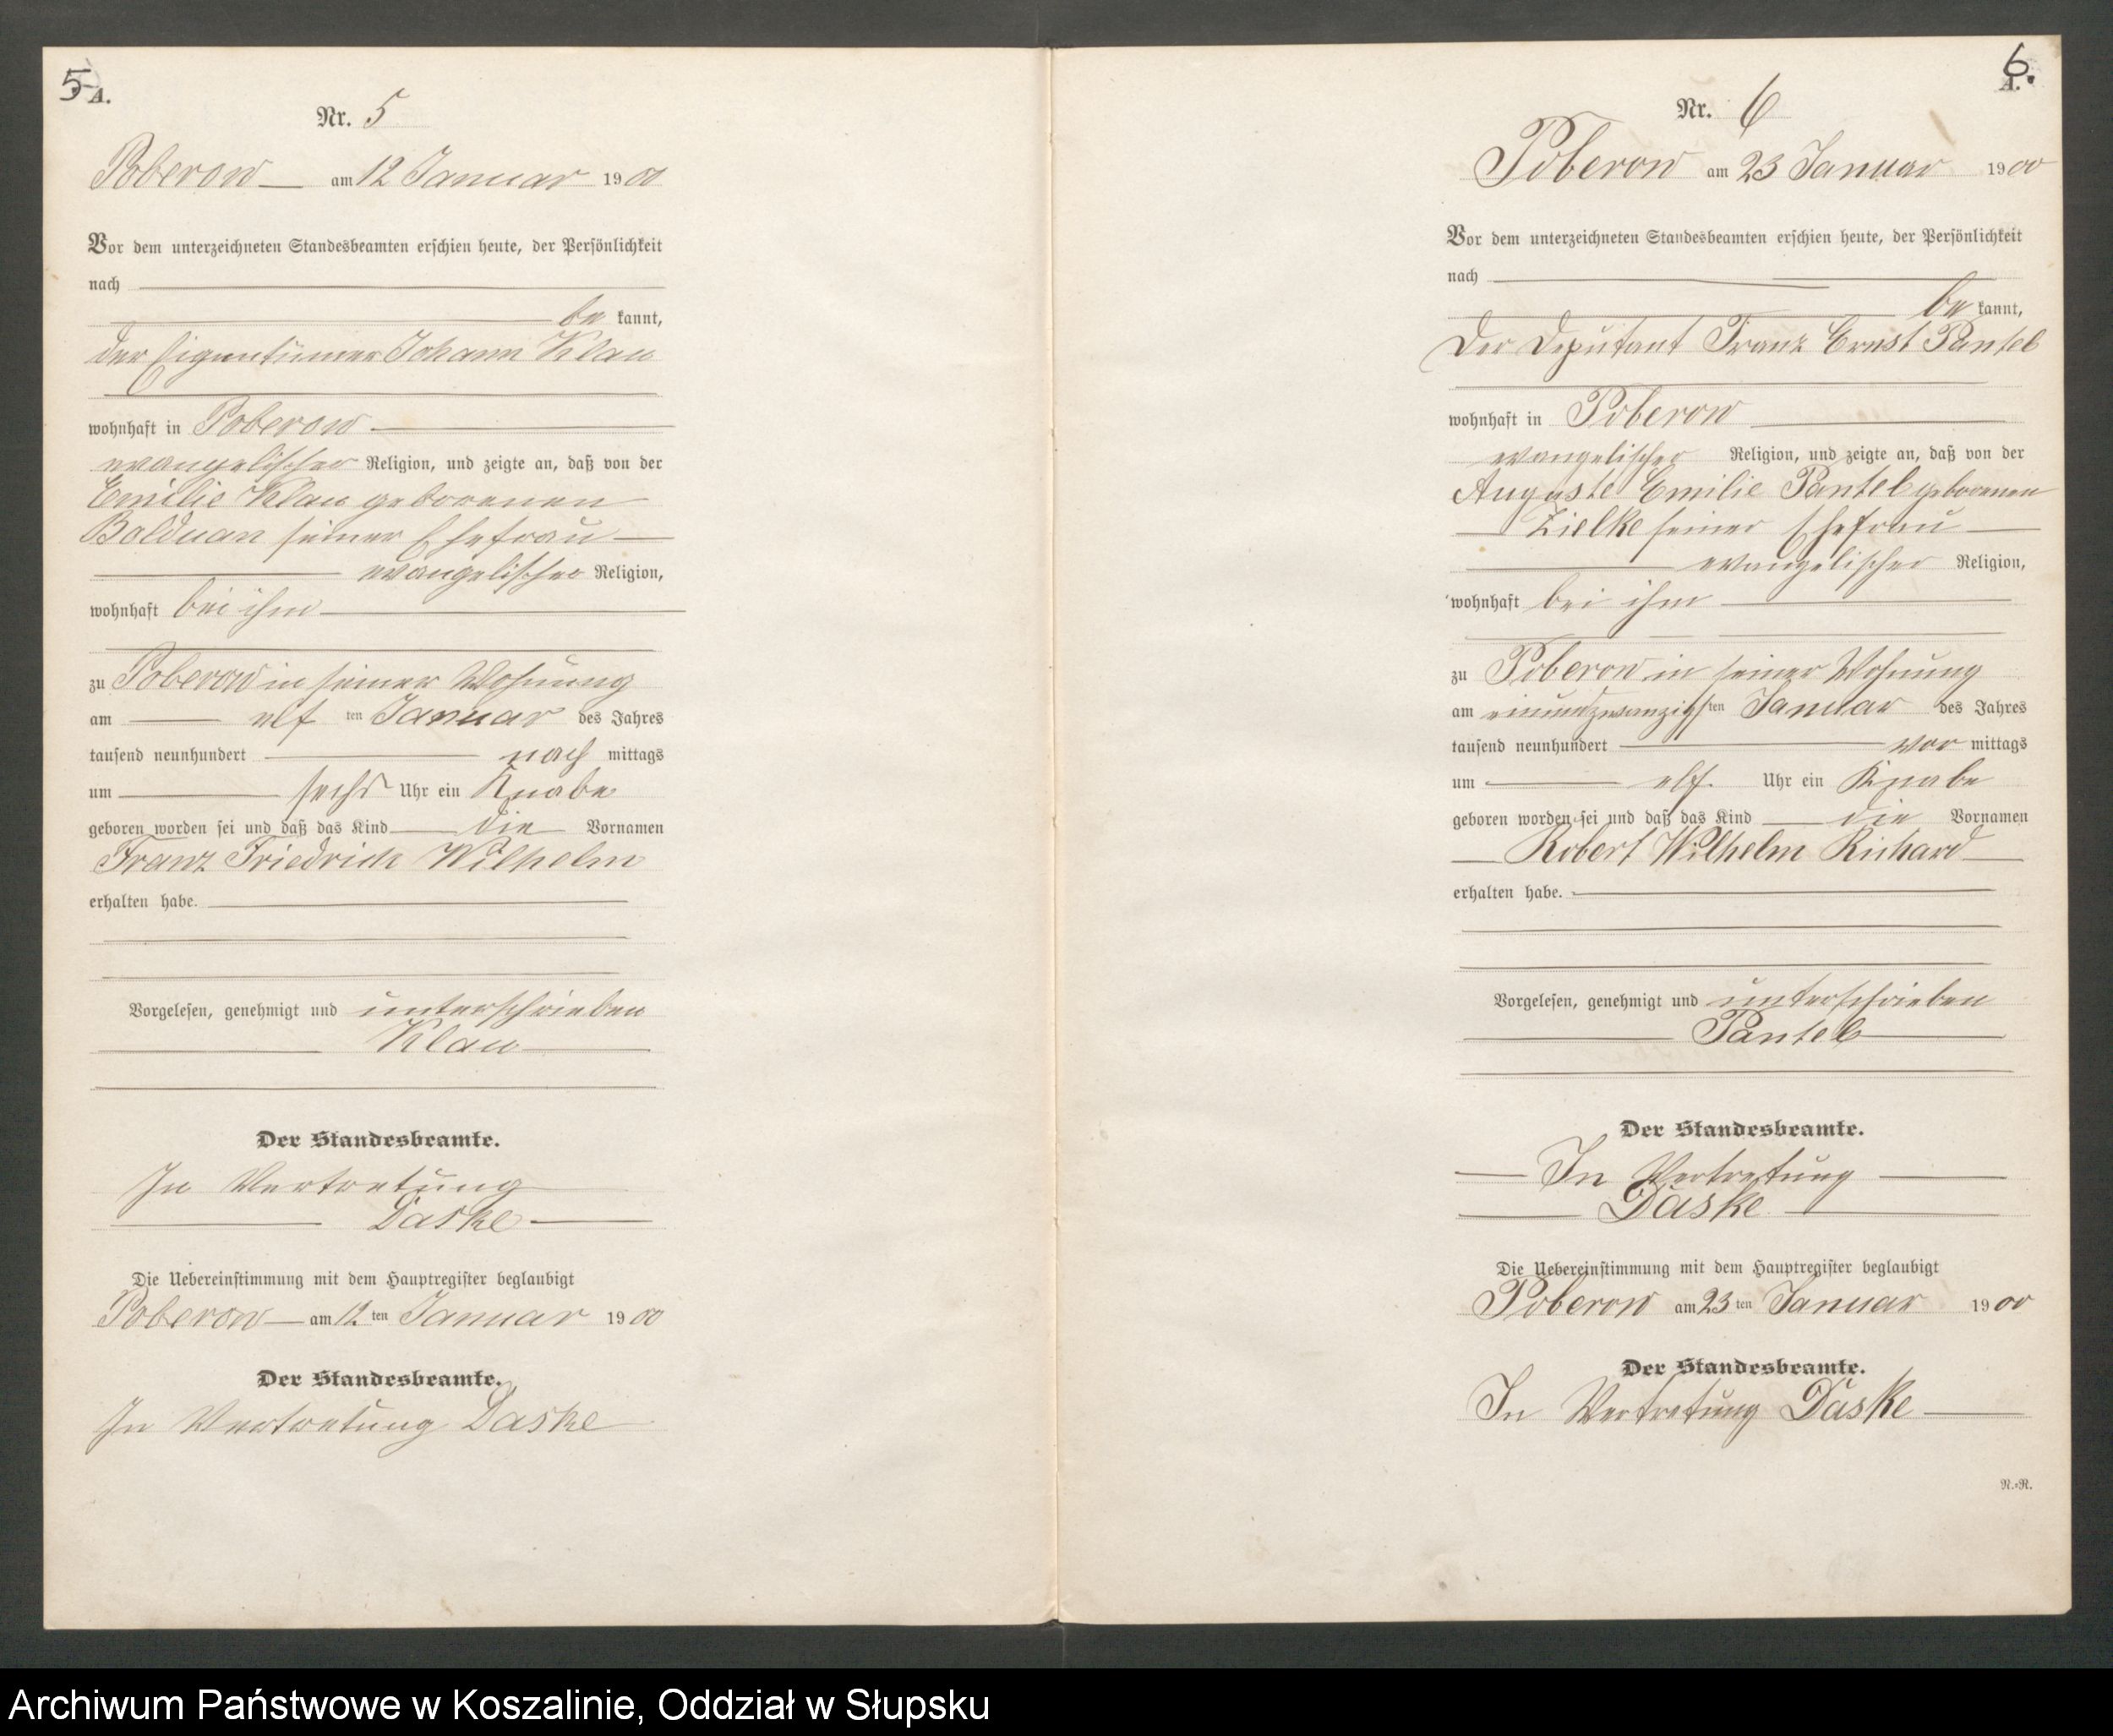 5
A.
Nr. 5
Poberow am 12 Januar 1900
Vor dem unterzeichneten Standesbeamten erschien heute, der Persönlichkeit
nach
be kannt,
der Eigentümer Johann Klau
wohnhaft in Poberow
evangelischer Religion, und zeigte an, daß von der
Emilie Klau geborenen
Balduan seiner Ehefrau
evangelischer Religion,
wohnhaft bei ihm
zu Poberow in seiner Wohnung
am elf ten Januar des Jahres
tausend neunhundert nach mittags
um sechs Uhr ein Knabe
geboren worden sei und daß das Kind die Vornamen
Franz Friedrich Wilhelm
erhalten habe.
Vorgelesen, genehmigt und unterschrieben
Klau
Der Standesbeamte.
In Vertretung
Daske
Die Uebereinstimmung mit dem Hauptregister beglaubigt
Poberow am 12 ten Januar 1900
Der Standesbeamte.
In Vertretung Daske
6.
A.
Nr. 6
Poberow am 23 Januar 1900
Vor dem unterzeichneten Standesbeamten erschien heute, der Persönlichkeit
nach
be kannt,
Der Deputant Franz Ernst Pantel
wohnhaft in Poberow
evangelischer Religion, und zeigte an, daß von der
Auguste Emilie Pantel geborenen
Zielke seiner Ehefrau
evangelischer Religion,
wohnhaft bei ihm
zu Poberow in seiner Wohnung
am einundzwanzigsten Januar des Jahres
tausend neunhundert vor mittags
um elf Uhr ein Knabe
geboren worden sei und daß das Kind die Vornamen
Robert Wilhelm Richard
erhalten habe.
Vorgelesen, genehmigt und unterschrieben
Pantel
Der Standesbeamte.
In Vertretung
Daske
Die Uebereinstimmung mit dem Hauptregister beglaubigt
Poberow am 23 ten Januar 1900
Der Standesbeamte.
In Vertretung Daske
N.=R.
Archiwum Państwowe w Koszalinie, Oddział w Słupsku